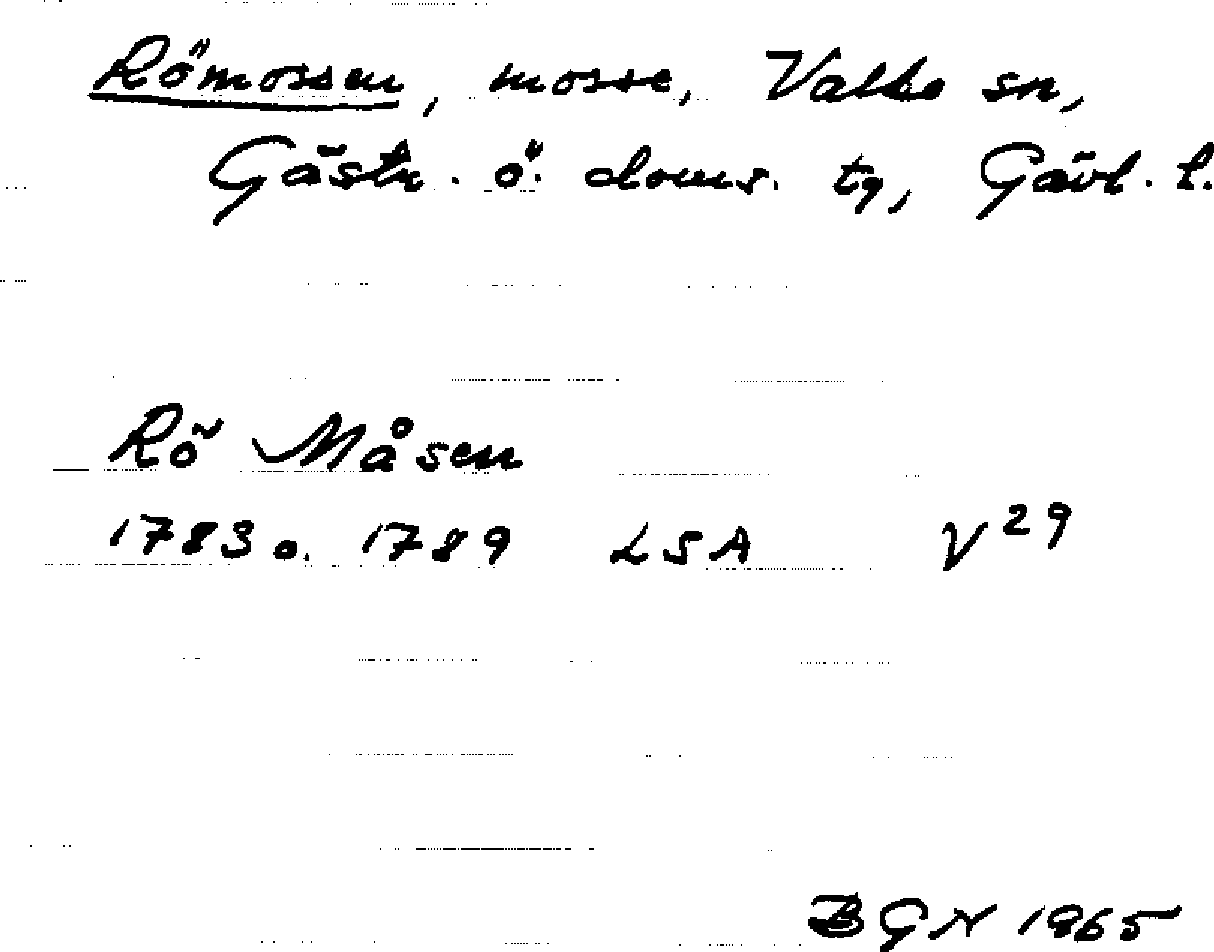 Römossen, mosse, Valbo sn,
Gästr. ö. doms. tg, Gävl. l.
Rö Måsen
1783 o. 1789 LSA V 29
BGN 1965